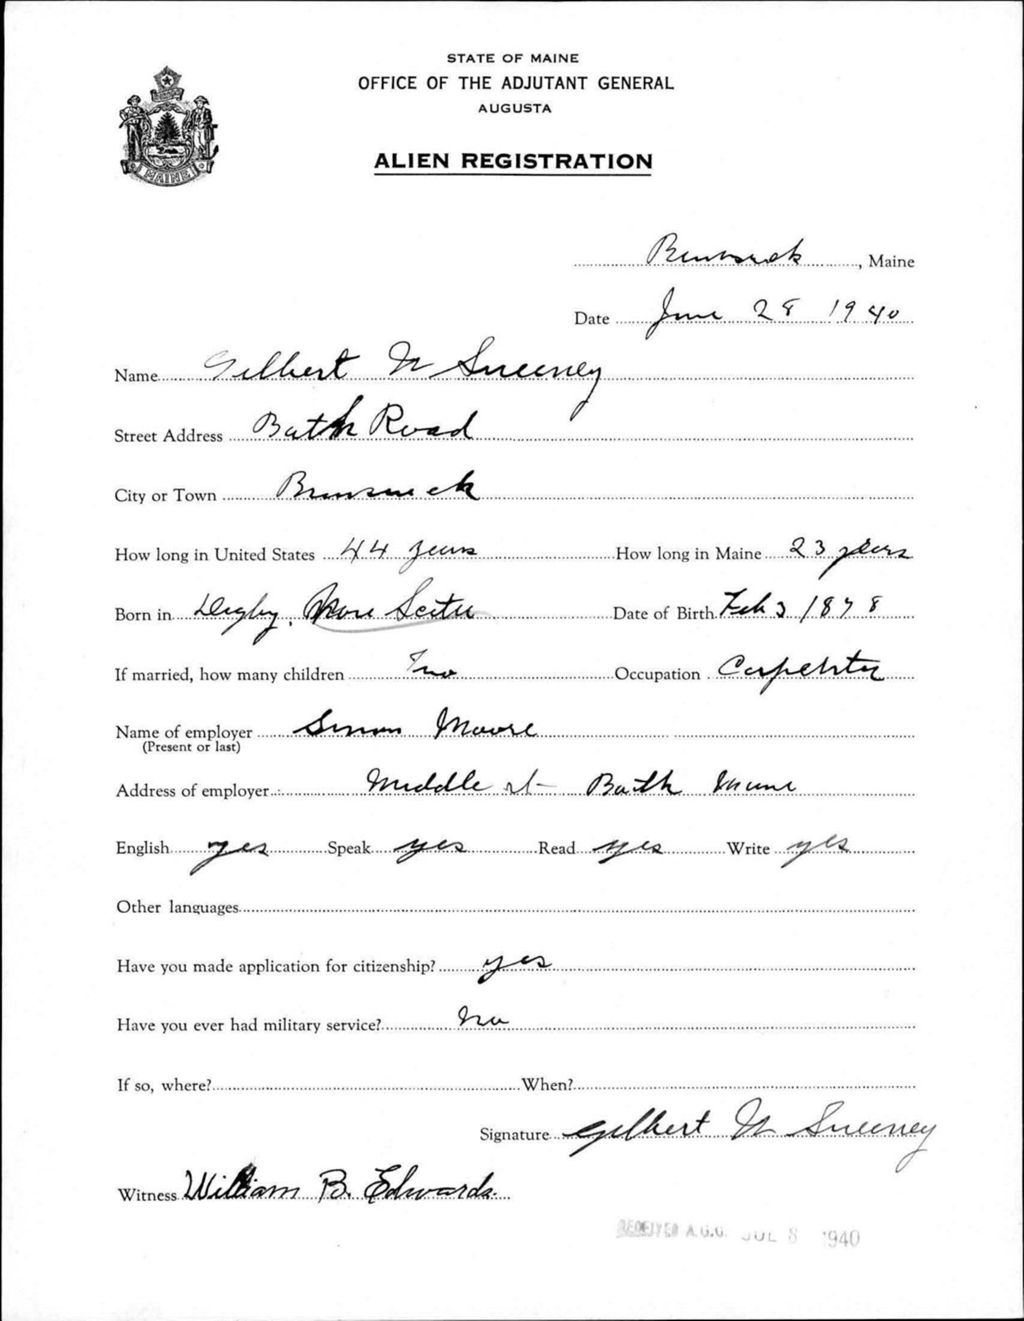 STATE OF MAINE
OFFICE OF THE ADJUTANT GENERAL
AUGUSTA
ALIEN REGISTRATION
MAINE
Brunswick, Maine
Date June 28 1940
Name Gilbert N Sweeney
Street Address Bath Road
City or Town Brunswick
How long in United States 44 years How long in Maine 23 years
Born in Digby, Nova Scotia Date of Birth Feb 3 1878
If married, how many children Two Occupation Carpenter
Name of employer Simon Moore
(Present or last)
Address of employer Middle st- Bath Maine
English yes Speak yes Read yes Write yes
Other languages
Have you made application for citizenship? yes
Have you ever had military service? No
If so, where? When?
Signature Gilbert N Sweeney
Witness William B. Edwards.
RECEIVED A.G.O. JUL 8 1940